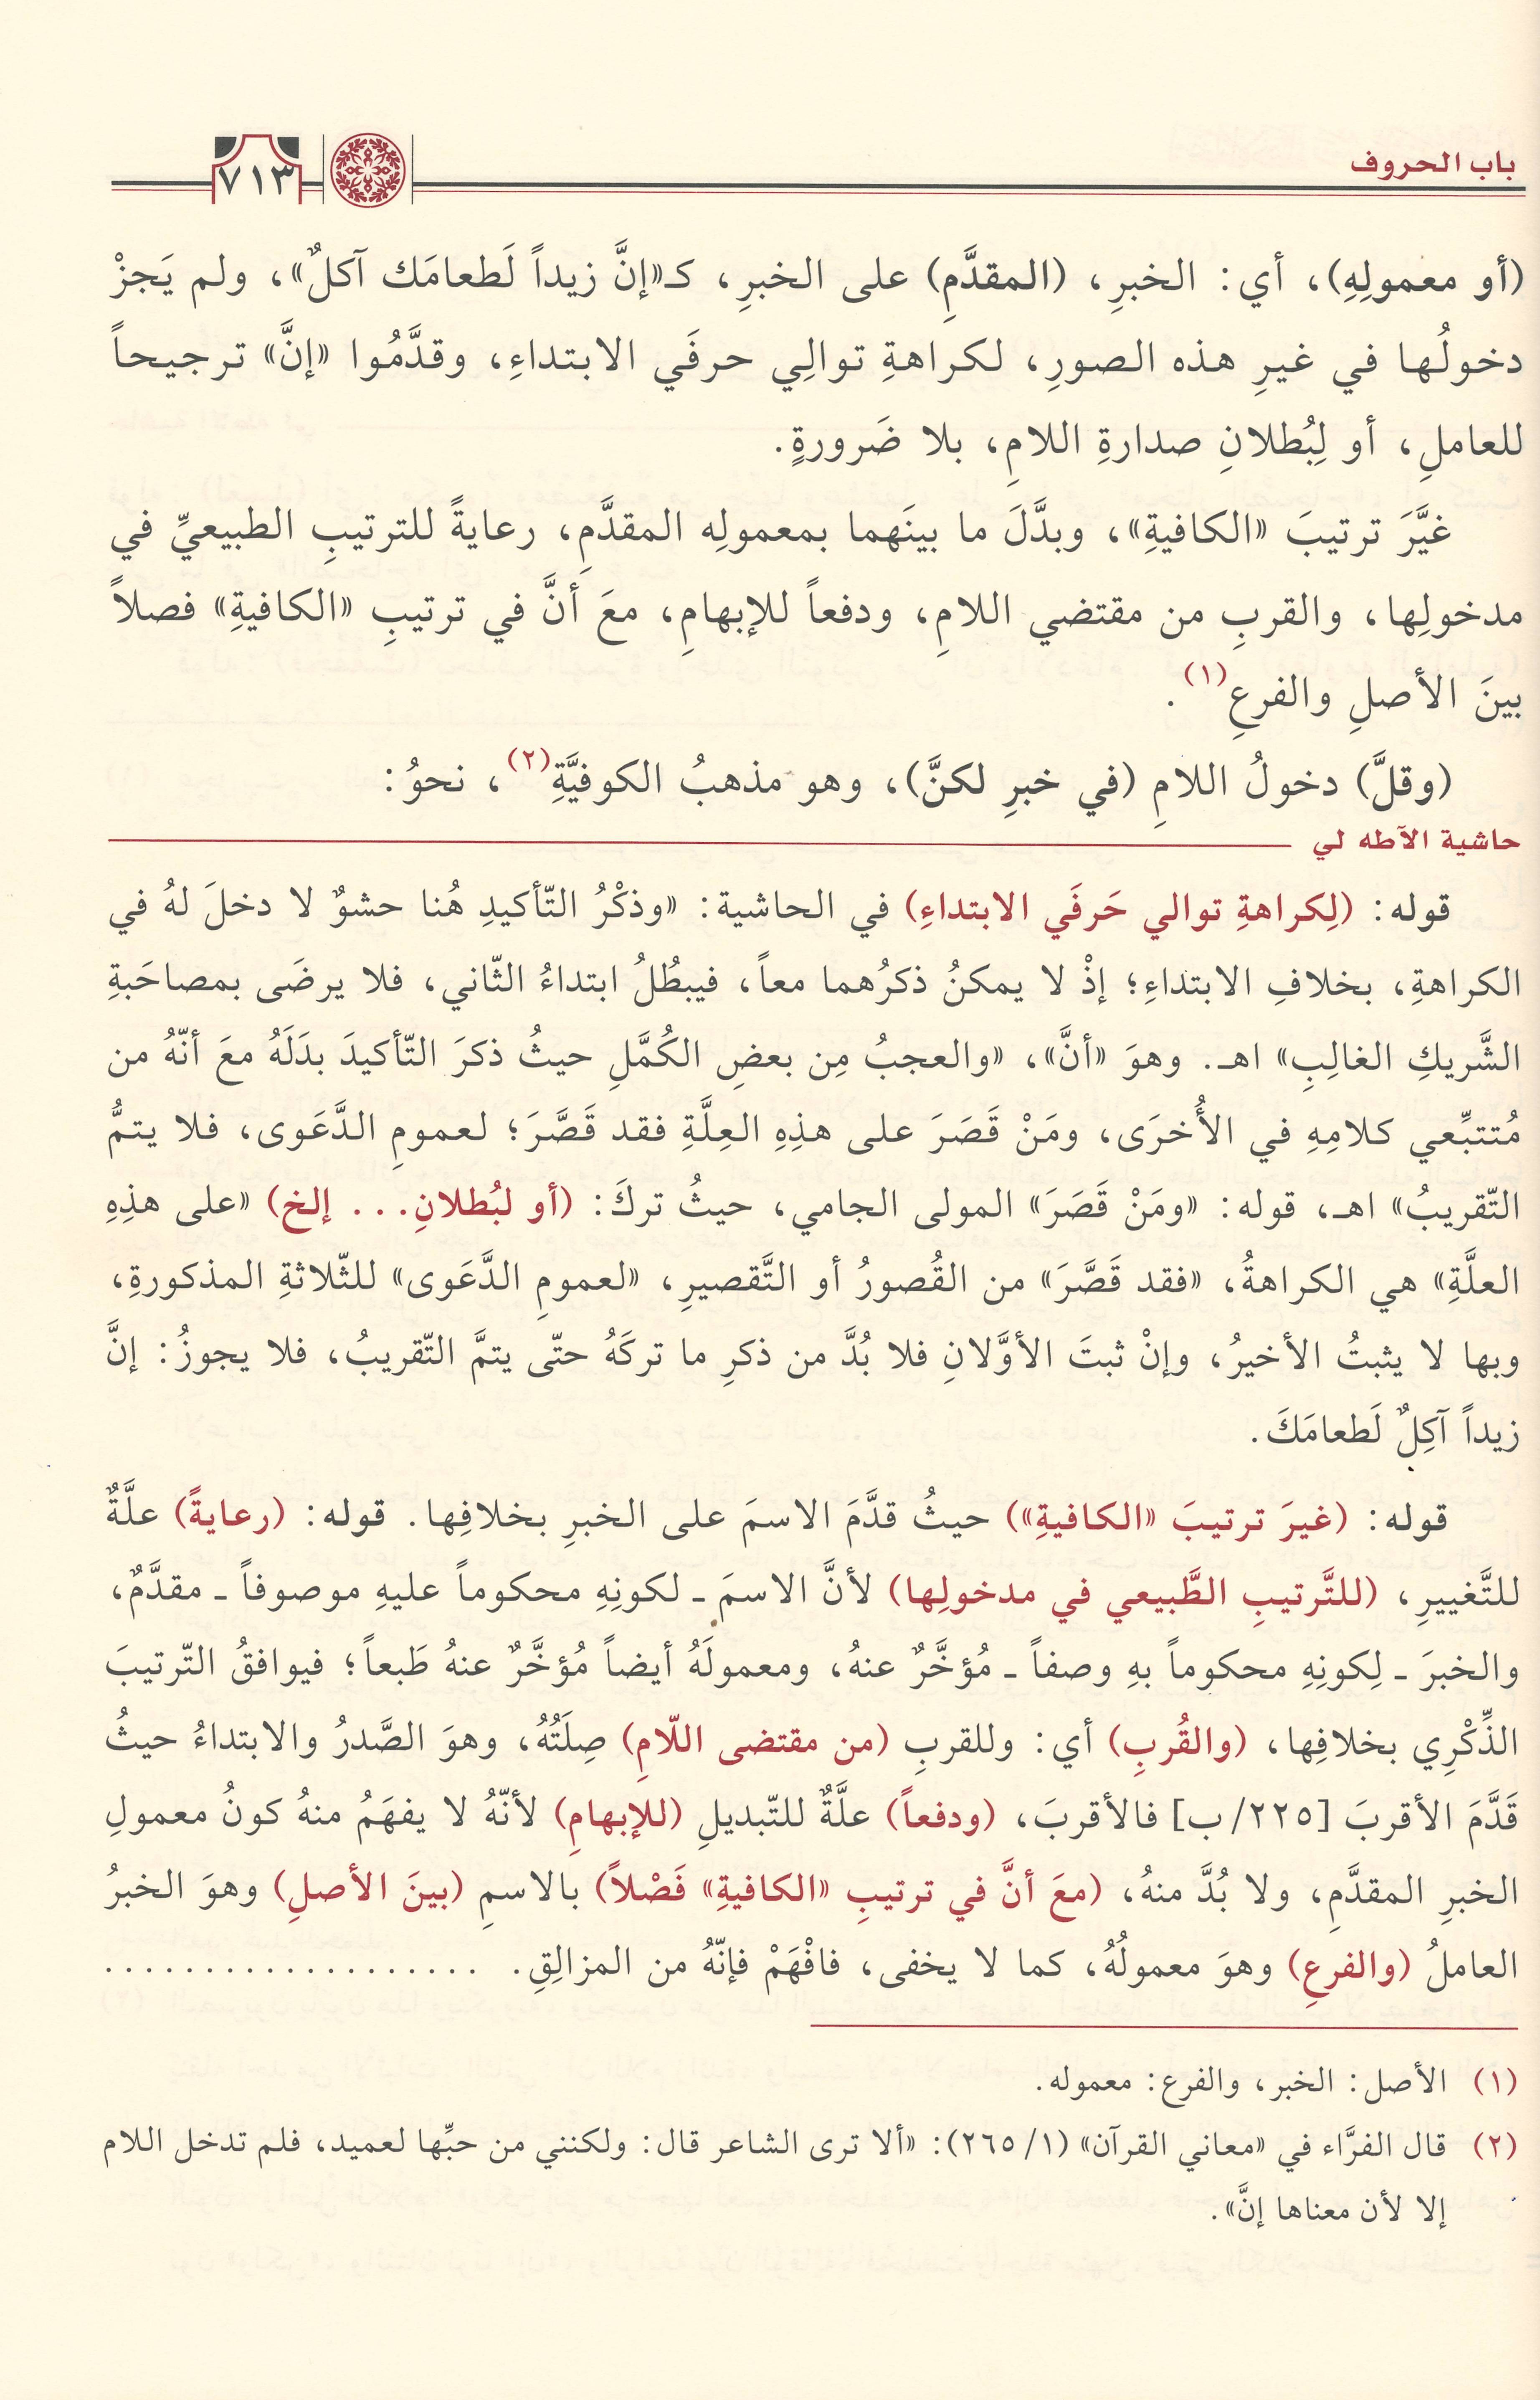 باب الحروف
٧١٣
(أو معمولِهِ)، أي: الخبرِ، (المقدَّمِ) على الخبرِ، كـ«إنَّ زيداً لَطعامَك آكلٌ»، ولم يَجزْ
دخولُها في غيرِ هذه الصورِ، لكراهةِ توالِي حرفَي الابتداءِ، وقدَّمُوا «إنَّ» ترجيحاً
للعاملِ، أو لِبُطلانِ صدارةِ اللامِ، بلا ضَرورةٍ.
غيَّرَ ترتيبَ «الكافيةِ»، وبدَّلَ ما بينَهما بمعمولِه المقدَّمِ، رعايةً للترتيبِ الطبيعيِّ في
مدخولِها، والقربِ من مقتضي اللامِ، ودفعاً للإبهامِ، معَ أنَّ في ترتيبِ «الكافيةِ» فصلاً
بينَ الأصلِ والفرعِ(١).
(وقلَّ) دخولُ اللامِ (في خبرِ لكنَّ)، وهو مذهبُ الكوفيَّةِ(٢)، نحوُ:
حاشية الآطه لي
قوله: (لِكراهةِ توالي حَرفَي الابتداءِ) في الحاشية: «وذكْرُ التّأكيدِ هُنا حشوٌ لا دخلَ لهُ في
الكراهةِ، بخلافِ الابتداءِ؛ إذْ لا يمكنُ ذكرُهما معاً، فيبطُلُ ابتداءُ الثّاني، فلا يرضَى بمصاحَبةِ
الشَّريكِ الغالِبِ» اهـ. وهوَ «أنَّ»، «والعجبُ مِن بعضِ الكُمَّلِ حيثُ ذكرَ التّأكيدَ بدَلَهُ معَ أنّهُ من
مُتتبِّعي كلامِهِ في الأُخرَى، ومَنْ قَصَرَ على هذِهِ العِلَّةِ فقد قَصَّرَ؛ لعمومِ الدَّعَوى، فلا يتمُّ
التّقريبُ» اهـ، قوله: «ومَنْ قَصَرَ» المولى الجامي، حيثُ تركَ: (أو لبُطلانِ... إلخ) «على هذِهِ
العلَّةِ» هي الكراهةُ، «فقد قَصَّرَ» من القُصورُ أو التَّقصيرِ، «لعمومِ الدَّعَوى» للثّلاثةِ المذكورةِ،
وبها لا يثبتُ الأخيرُ، وإنْ ثبتَ الأوَّلانِ فلا بُدَّ من ذكرِ ما تركَهُ حتّى يتمَّ التّقريبُ، فلا يجوزُ: إنَّ
زيداً آكِلٌ لَطعامَكَ.
قوله: (غيرَ ترتيبَ «الكافيةِ») حيثُ قدَّمَ الاسمَ على الخبرِ بخلافِها. قوله: (رعايةً) علَّةٌ
للتَّغييرِ، (للتَّرتيبِ الطَّبيعي في مدخولِها) لأنَّ الاسمَ ـ لكونِهِ محكوماً عليهِ موصوفاً ـ مقدَّمٌ،
والخبرَ ـ لِكونِهِ محكوماً بهِ وصفاً ـ مُؤخَّرٌ عنهُ، ومعمولَهُ أيضاً مُؤخَّرٌ عنهُ طَبعاً؛ فيوافقُ التّرتيبَ
الذِّكْرِي بخلافِها، (والقُربِ) أي: وللقربِ (من مقتضى اللّامِ) صِلَتُهُ، وهوَ الصَّدرُ والابتداءُ حيثُ
قَدَّمَ الأقربَ [٢٢٥/ب] فالأقربَ، (ودفعاً) علَّةٌ للتّبديلِ (للإبهامِ) لأنّهُ لا يفهَمُ منهُ كونُ معمولِ
الخبرِ المقدَّمِ، ولا بُدَّ منهُ، (معَ أنَّ في ترتيبِ «الكافيةِ» فَصْلاً) بالاسمِ (بينَ الأصلِ) وهوَ الخبرُ
العاملُ (والفرعِ) وهوَ معمولُهُ، كما لا يخفى، فافْهَمْ فإنّهُ من المزالِقِ. ...................
(١) الأصل: الخبر، والفرع: معموله.
(٢) قال الفرَّاء في «معاني القرآن» (١/ ٢٦٥): «ألا ترى الشاعر قال: ولكنني من حبِّها لعميد، فلم تدخل اللام
إلا لأن معناها إنَّ».